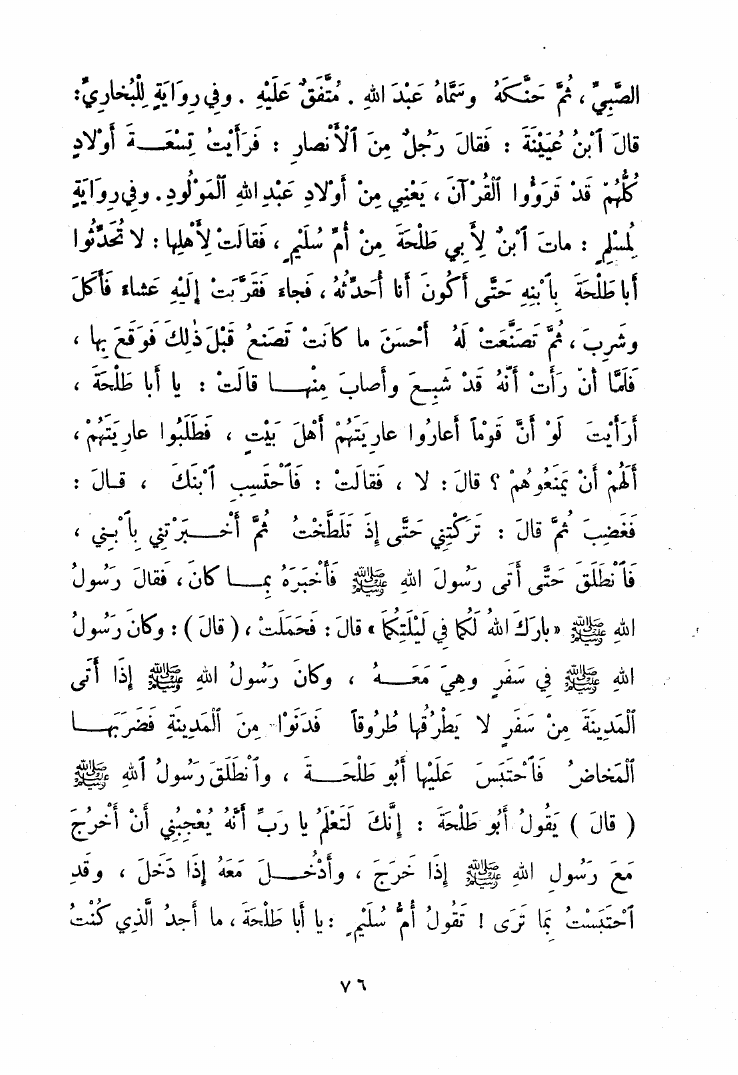 الصَّبِيِّ ، ثُمَّ حَنَّكَهُ وَسَمَّاهُ عَبْدَ اللهِ . مُتَّفَقٌ عَلَيْهِ . وفي رِوَايَةٍ لِلْبُخارِيِّ :
قالَ ٱبْنُ عُيَيْنَةَ : فَقالَ رَجُلٌ مِنَ ٱلْأَنْصارِ : فَرَأَيْتُ تِسْعَــةَ أَوْلادٍ
كُلُّهُمْ قَدْ قَرَؤُوا ٱلْقُرْآنَ ، يَعْنِي مِنْ أَوْلادِ عَبْدِ اللهِ ٱلْمَوْلُودِ . وفي رِوَايَةٍ
لِمُسْلِمٍ : ماتَ ٱبْنٌ لِأَبِي طَلْحَةَ مِنْ أُمِّ سُلَيْمٍ ، فَقالَتْ لِأَهْلِها : لا تُحَدِّثُوا
أَبا طَلْحَةَ بِٱبْنِهِ حَتَّى أَكُونَ أَنا أُحَدِّثُهُ ، فَجاءَ فَقَرَّبَتْ إِلَيْهِ عَشاءً فَأَكَلَ
وشَرِبَ ، ثُمَّ تَصَنَّعَتْ لَهُ أَحْسَنَ ما كانَتْ تَصَنَّعُ قَبْلَ ذٰلِكَ فَوَقَعَ بِها ،
فَلَمَّا أَنْ رَأَتْ أَنَّهُ قَدْ شَبِــعَ وأَصابَ مِنْهــا قالَتْ : يا أَبا طَلْحَةَ ،
أَرَأَيْتَ لَوْ أَنَّ قَوْماً أَعارُوا عارِيَتَهُمْ أَهْلَ بَيْتٍ ، فَطَلَبُوا عارِيَتَهُمْ ،
أَلَهُمْ أَنْ يَمْنَعُوهُمْ ؟ قالَ : لا ، فَقالَتْ : فَٱحْتَسِبِ ٱبْنَكَ ، قــالَ :
فَغَضِبَ ثُمَّ قالَ : تَرَكْتِنِي حَتَّى إِذَ تَلَطَّخْتُ ثُمَّ أَخْــبَرْتِنِي بِٱبْــنِي ،
فَٱنْطَلَقَ حَتَّى أَتَى رَسُولَ اللهِ ﷺ فَأَخْبَرَهُ بِمــا كانَ ، فَقالَ رَسُولُ
اللهِ ﷺ « بارَكَ اللهُ لَكُما في لَيْلَتِكُما » قالَ : فَحَمَلَتْ ، ( قالَ ) : وكانَ رَسُولُ
اللهِ ﷺ فِي سَفَرٍ وهِيَ مَعَــهُ ، وكانَ رَسُولُ اللهِ ﷺ إِذَا أَتَى
ٱلْمَدِينَةَ مِنْ سَفَرٍ لا يَطْرُقُها طُرُوقاً فَدَنَوْا مِنَ ٱلْمَدِينَةِ فَضَرَبَهــا
ٱلْمَخاضُ فَٱحْتَبَسَ عَلَيْها أَبُو طَلْحَــةَ ، وٱنْطَلَقَ رَسُولُ ٱللهِ ﷺ
( قالَ ) يَقُولُ أَبُو طَلْحَةَ : إِنَّكَ لَتَعْلَمُ يا رَبِّ أَنَّهُ يُعْجِبُنِي أَنْ أَخْرُجَ
مَعَ رَسُولِ اللهِ ﷺ إِذَا خَرَجَ ، وأَدْخُــلَ مَعَهُ إِذَا دَخَلَ ، وقَدِ
ٱحْتَبَسْتُ بِمَا تَرَى ! تَقُولُ أُمُّ سُلَيْمٍ : يا أَبا طَلْحَةَ ، ما أَجِدُ ٱلَّذِي كُنْتُ
٧٦